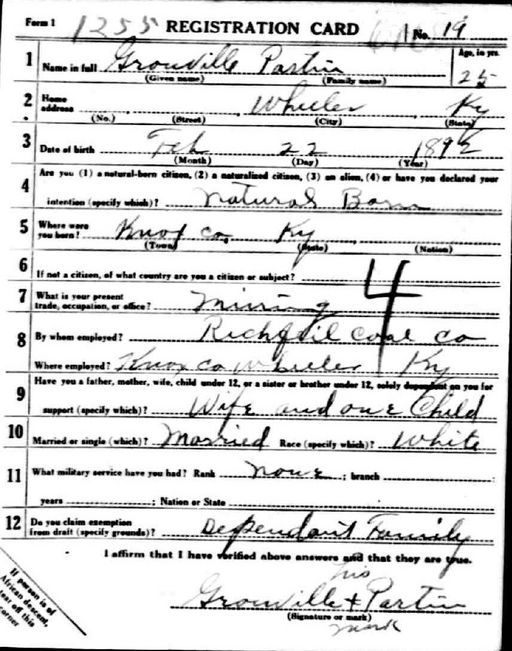 Form 1 1255 REGISTRATION CARD No. 19
1 Name in full Grouville Partin Age, in yrs. 25
(Given name) (Family name)
2 Home address Wheeler Ky
(No.) (Street) (City) (State)
3 Date of birth Feb 22 1892
(Month) (Day) (Year)
4 Are you (1) a natural-born citizen, (2) a naturalized citizen, (3) an alien, (4) or have you declared your
intention (specify which)? Natural Born
5 Where were you born? Knox co. Ky
(Town) (State) (Nation)
6 If not a citizen, of what country are you a citizen or subject?
7 What is your present trade, occupation, or office? Mining
4
8 By whom employed? coal co
Where employed? Knox co Wheeler Ky
9 Have you a father, mother, wife, child under 12, or a sister or brother under 12, solely dependent on you for
support (specify which)? Wife and one Child
10 Married or single (which)? Married Race (specify which)? White
11 What military service have you had? Rank None ; branch
years ; Nation or State
12 Do you claim exemption from draft (specify grounds)? Dependant Family
I affirm that I have verified above answers and that they are true.
his
Grouville + Partin
(Signature or mark)
mark
If person is of
African descent,
tear off this
corner